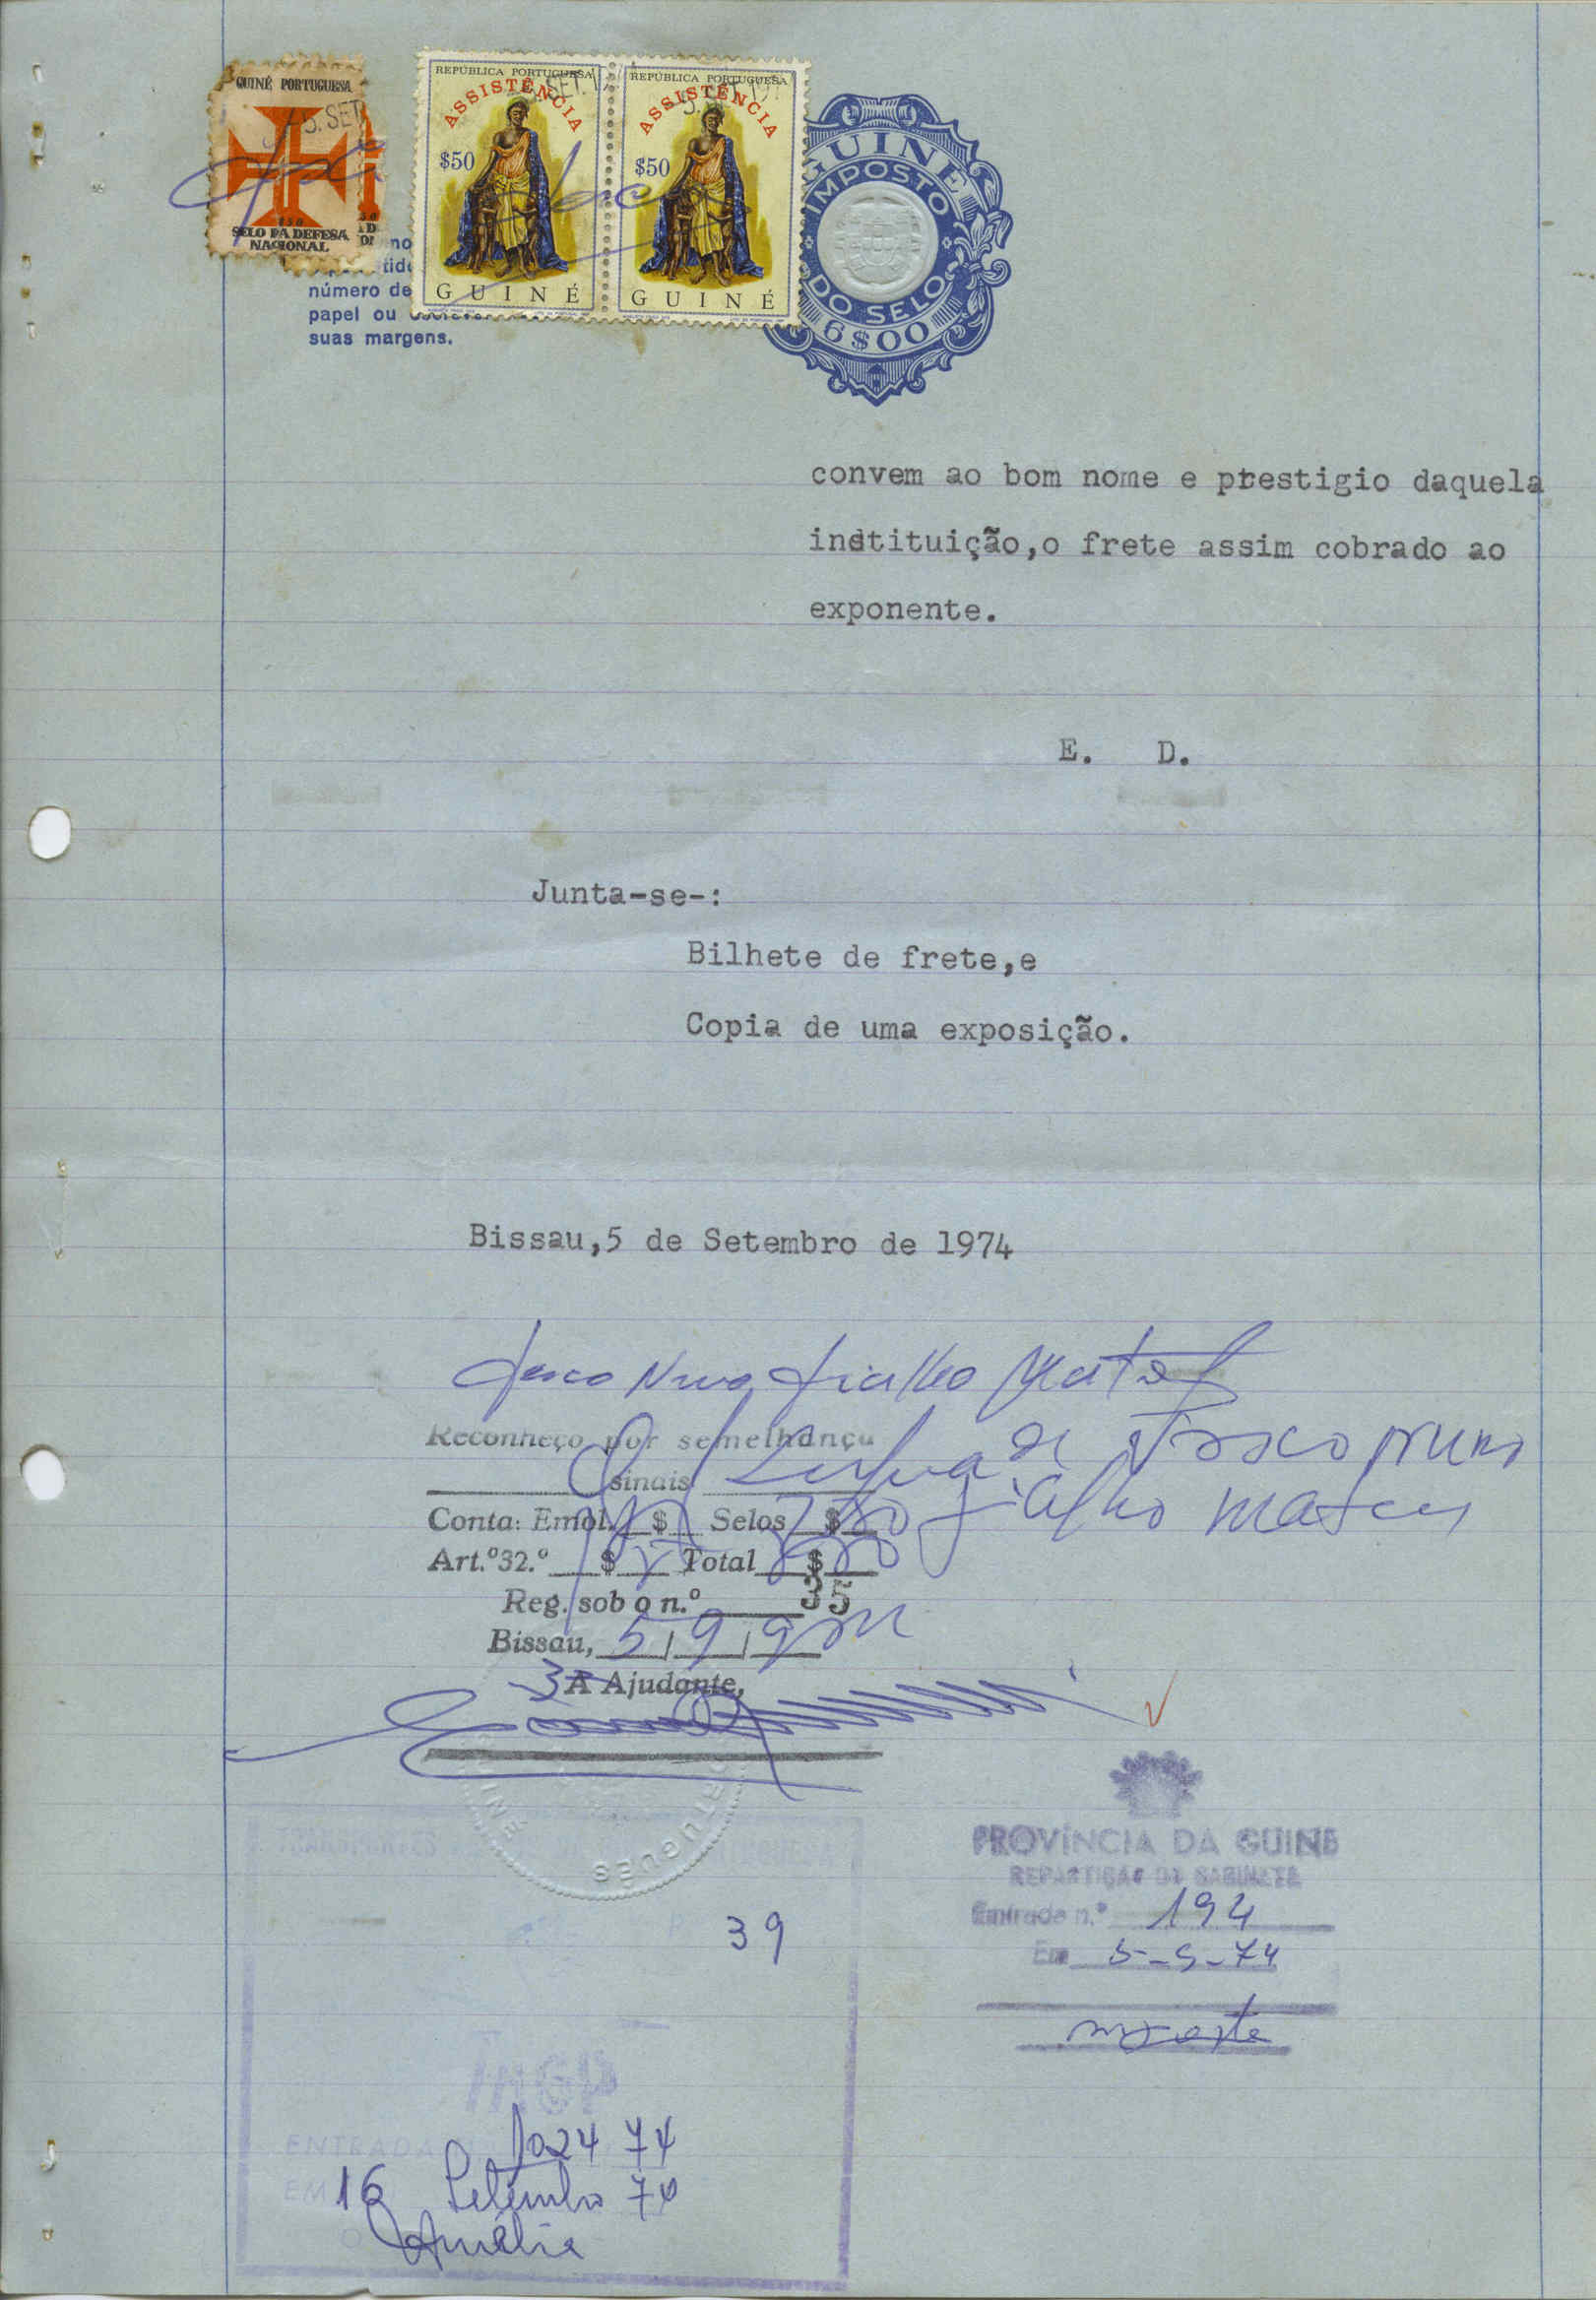 GUINÉ PORTUGUESA
5. SET
$50
SELO DA DEFESA
NACIONAL
REPÚBLICA PORTUGUESA
ASSISTÊNCIA
$50
GUINÉ
REPÚBLICA PORTUGUESA
ASSISTÊNCIA
$50
GUINÉ
GUINÉ
IMPOSTO
DO SELO
6$00
número de
papel ou
suas margens.
convem ao bom nome e prestigio daquela
instituição,o frete assim cobrado ao
exponente.
E. D.
Junta-se-:
Bilhete de frete,e
Copia de uma exposição.
Bissau,5 de Setembro de 1974
Vasco Nuno Fialho Matos
Reconheço por semelhança
de Vasco Nuno
sinais
Fialho Matos
Conta: Emol. $ Selos $
Art.º32.º $ Total $
Reg. sob o n.º 35
Bissau, 5/9/
3A Ajudante,
PROVÍNCIA DA GUINÉ
REPARTIÇÃO DO GABINETE
Entrada n.º 194
Em 5-9-74
TRANSPORTES
PORTUGUESA
39
ENTRADA 1024 74
EM 16 Setembro 74
O Amélia